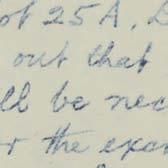 of 25A.
out that
be nec
the exa